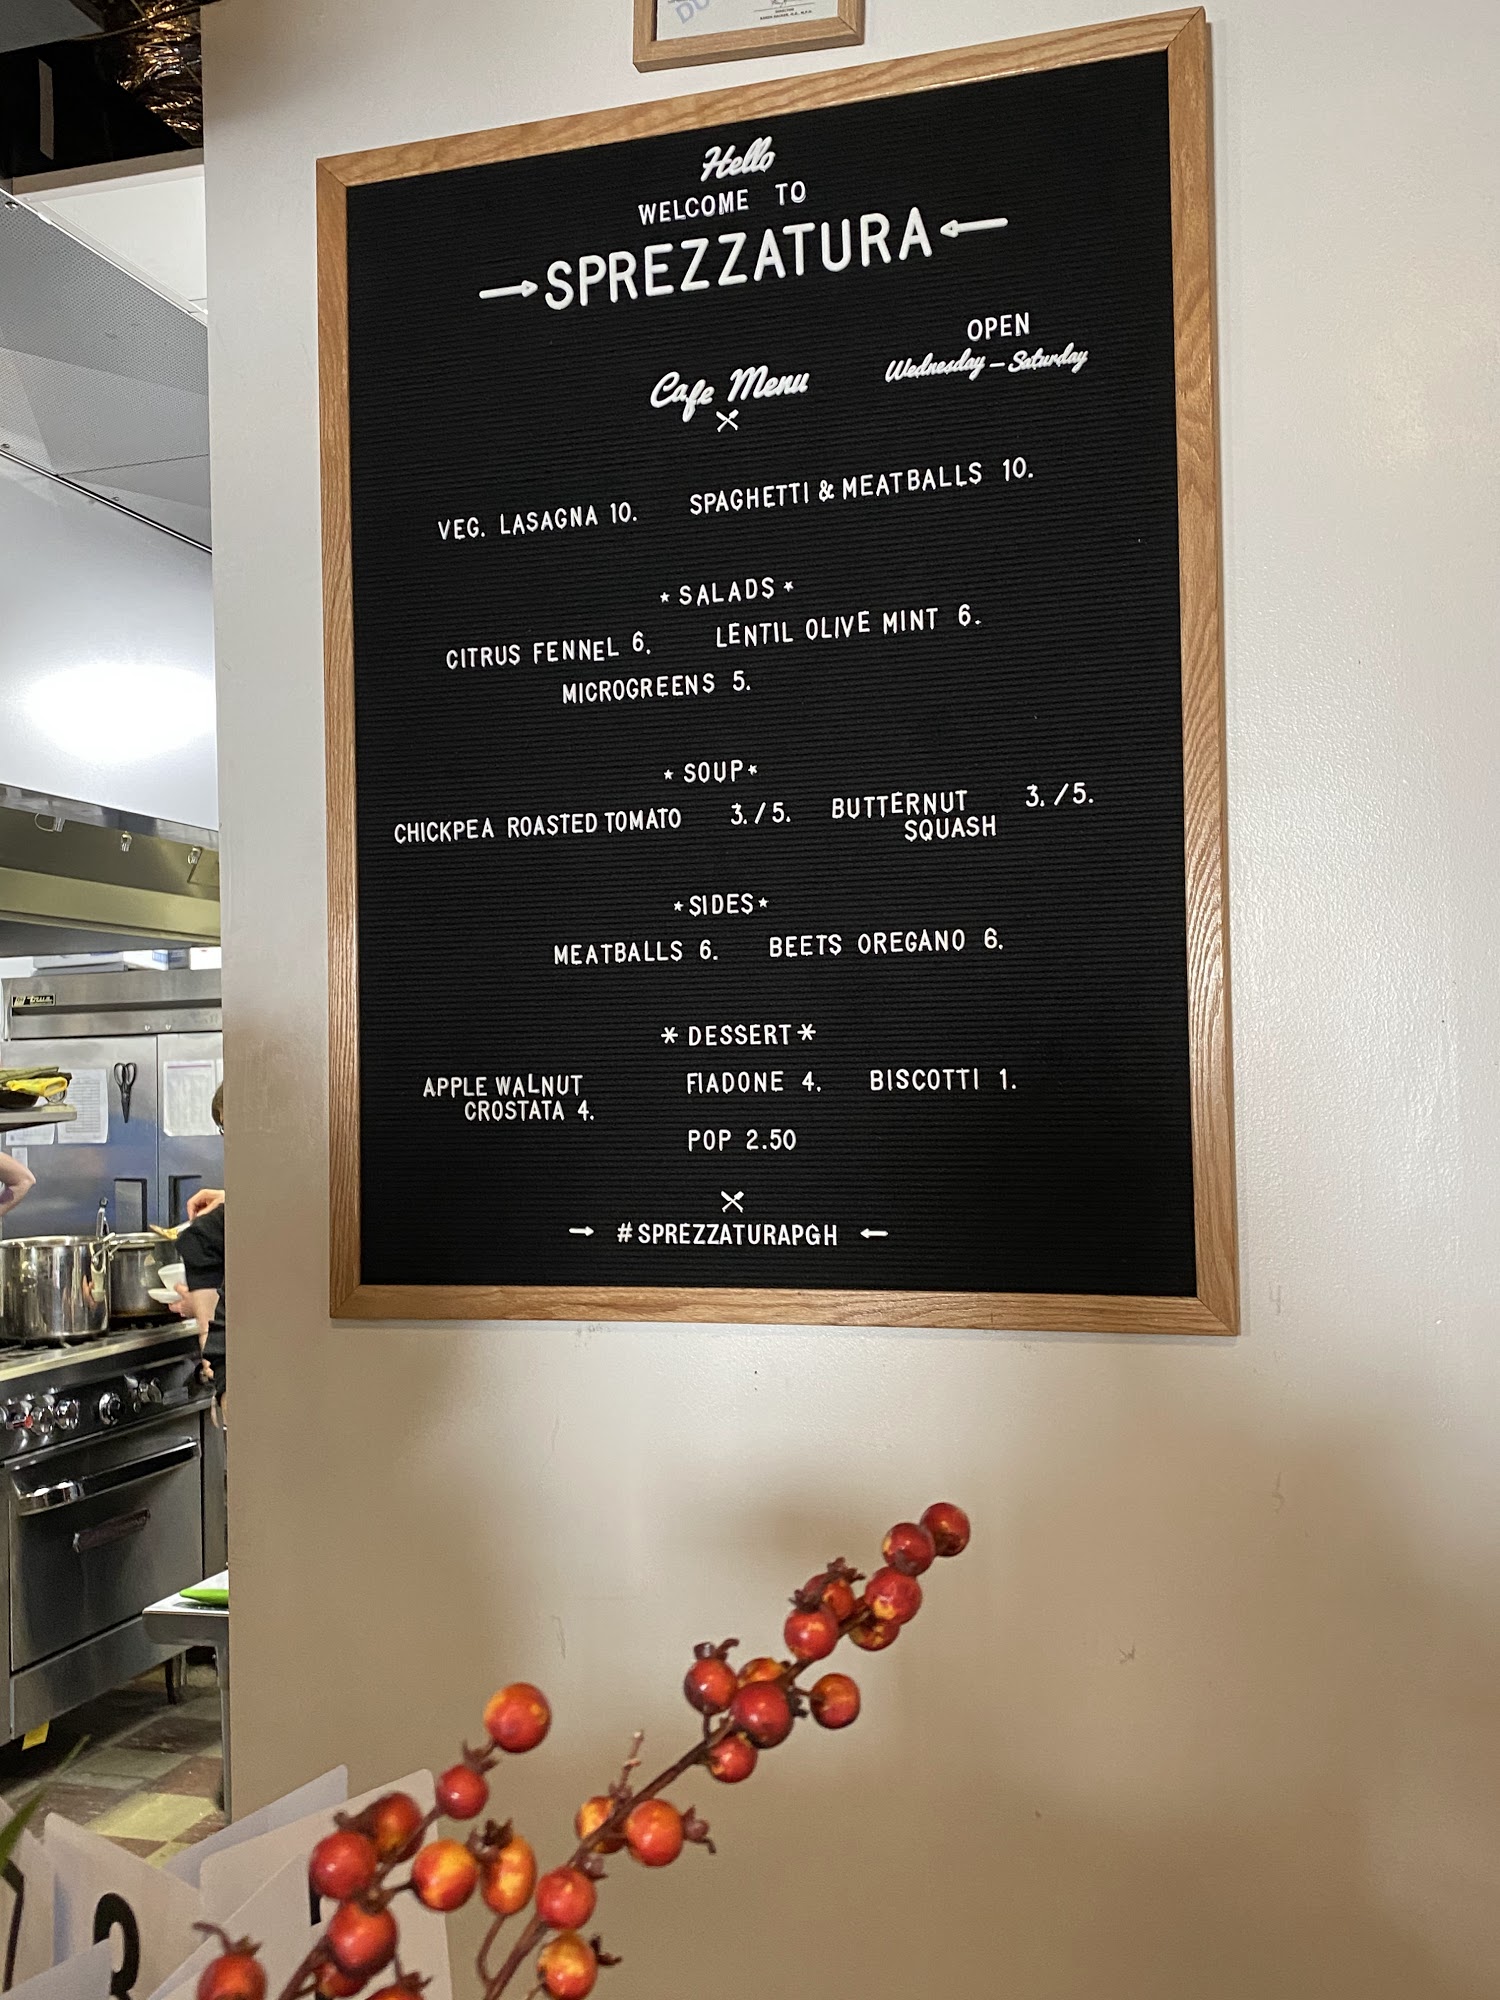 Hello
WELCOME TO
SPREZZATURA
OPEN
Wednesday – Saturday
Cafe Menu
VEG. LASAGNA 10. SPAGHETTI & MEATBALLS 10.
* SALADS *
CITRUS FENNEL 6. LENTIL OLIVE MINT 6.
MICROGREENS 5.
* SOUP *
CHICKPEA ROASTED TOMATO 3. / 5. BUTTERNUT 3. / 5.
SQUASH
* SIDES *
MEATBALLS 6. BEETS OREGANO 6.
* DESSERT *
APPLE WALNUT FIADONE 4. BISCOTTI 1.
CROSTATA 4.
POP 2.50
# SPREZZATURAPGH
true
3